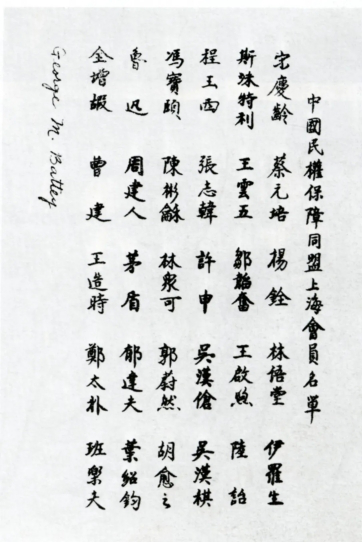 中國民權保障同盟上海會員名單
宋慶齡 蔡元培 楊銓 林語堂 伊羅生
斯沫特利 王雲五 鄒韜奮 王啟煦 陸詒
程王西 張志韓 許申 吳漢傖 吳漢祺
馮寶頤 陳彬龢 林眾可 郭蔚然 胡愈之
魯迅 周建人 茅盾 郁達夫 葉紹鈞
全增嘏 曹建 王造時 鄭太朴 班樂夫
George M. Battey